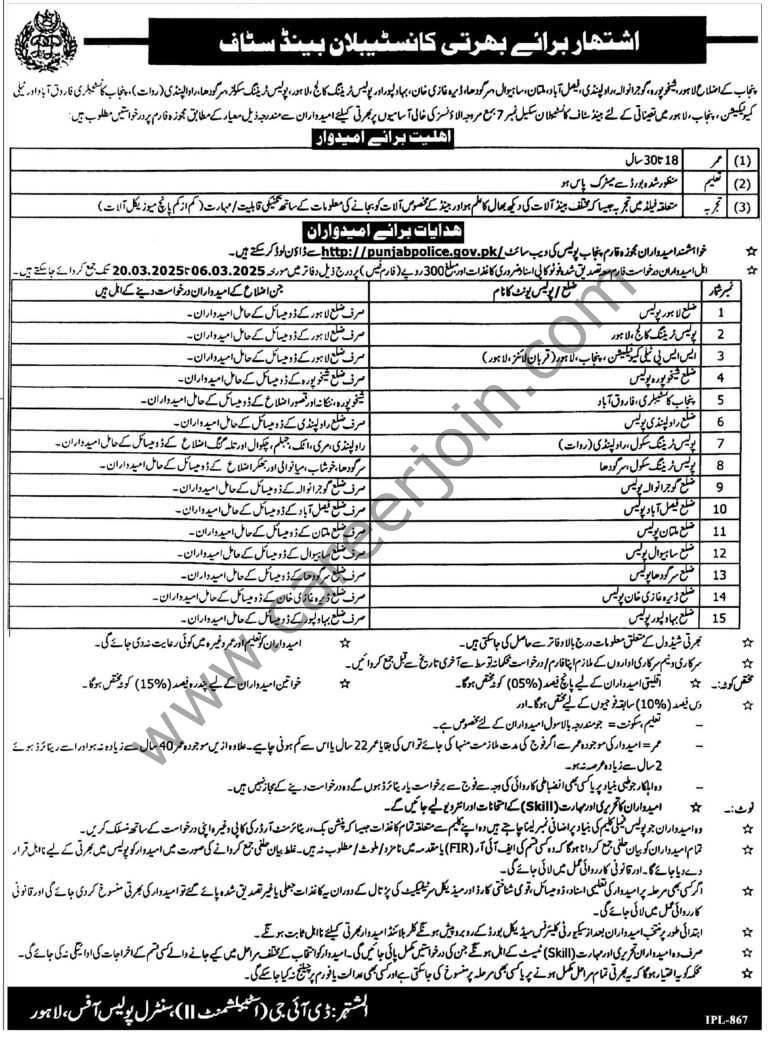 اشتہار برائے بھرتی کانسٹیبلان بینڈ سٹاف
پنجاب کے اضلاع لاہور، شیخوپورہ، گوجرانوالہ، راولپنڈی، فیصل آباد، ملتان، ساہیوال، سرگودھا، ڈیرہ غازی خان، بہاولپور اور پولیس ٹریننگ کالج، لاہور، پولیس ٹریننگ سکولز سرگودھا، راولپنڈی (روات)، پنجاب کانسٹیبلری فاروق آباد اور ٹیلی
کمیونیکیشن، پنجاب، لاہور میں تعیناتی کے لئے بینڈ سٹاف کانسٹیبلان سکیل نمبر 7 بمع مروجہ الاؤنسز کی خالی آسامیوں پر بھرتی کیلئے امیدواران سے مندرجہ ذیل معیار کے مطابق مجوزہ فارم پر درخواستیں مطلوب ہیں:
اھلیت برائے امیدوار
(1) عمر 18 تا 30 سال
(2) تعلیم منظور شدہ بورڈ سے میٹرک پاس ہو
(3) تجربہ متعلقہ فیلڈ میں تجربہ جیسا کہ مختلف بینڈ آلات کی دیکھ بھال کا علم ہو اور بینڈ کے مخصوص آلات کو بجانے کی معلومات کے ساتھ تکنیکی قابلیت/مہارت (کم از کم پانچ میوزیکل آلات)
ھدایات برائے امیدواران
☆ خواہشمند امیدواران مجوزہ فارم پنجاب پولیس کی ویب سائٹ http://punjabpolice.gov.pk/ سے ڈاؤن لوڈ کر سکتے ہیں۔
☆ اہل امیدواران درخواست فارم بمعہ تصدیق شدہ فوٹو کاپی اسناد ضروری کاغذات اور مبلغ 300 روپے (فارم فیس) پر درج ذیل دفاتر میں مورخہ 06.03.2025 تا 20.03.2025 تک جمع کروائے جا سکتے ہیں۔
نمبر شمار ضلع/پولیس یونٹ کا نام جن اضلاع کے امیدواران درخواست دینے کے اہل ہیں
1 ضلع لاہور پولیس صرف ضلع لاہور کے ڈومیسائل کے حامل امیدواران۔
2 پولیس ٹریننگ کالج، لاہور صرف ضلع لاہور کے ڈومیسائل کے حامل امیدواران۔
3 ایس ایس پی ٹیلی کمیونیکیشن، پنجاب، لاہور (قربان لائنز، لاہور) صرف ضلع لاہور کے ڈومیسائل کے حامل امیدواران۔
4 ضلع شیخوپورہ پولیس صرف ضلع شیخوپورہ کے ڈومیسائل کے حامل امیدواران۔
5 پنجاب کانسٹیبلری، فاروق آباد شیخوپورہ، ننکانہ اور قصور اضلاع کے ڈومیسائل کے حامل امیدواران۔
6 ضلع راولپنڈی پولیس صرف ضلع راولپنڈی کے ڈومیسائل کے حامل امیدواران۔
7 پولیس ٹریننگ سکول، راولپنڈی (روات) راولپنڈی، مری، اٹک، جہلم، چکوال اور تلہ گنگ اضلاع کے ڈومیسائل کے حامل امیدواران۔
8 پولیس ٹریننگ سکول، سرگودھا سرگودھا، خوشاب، میانوالی اور بھکر اضلاع کے ڈومیسائل کے حامل امیدواران۔
9 ضلع گوجرانوالہ پولیس صرف ضلع گوجرانوالہ کے ڈومیسائل کے حامل امیدواران۔
10 ضلع فیصل آباد پولیس صرف ضلع فیصل آباد کے ڈومیسائل کے حامل امیدواران۔
11 ضلع ملتان پولیس صرف ضلع ملتان کے ڈومیسائل کے حامل امیدواران۔
12 ضلع ساہیوال پولیس صرف ضلع ساہیوال کے ڈومیسائل کے حامل امیدواران۔
13 ضلع سرگودھا پولیس صرف ضلع سرگودھا کے ڈومیسائل کے حامل امیدواران۔
14 ضلع ڈیرہ غازی خان پولیس صرف ضلع ڈیرہ غازی خان کے ڈومیسائل کے حامل امیدواران۔
15 ضلع بہاولپور پولیس صرف ضلع بہاولپور کے ڈومیسائل کے حامل امیدواران۔
☆ بھرتی شیڈول کے متعلق معلومات درج بالا دفاتر سے حاصل کی جاسکتی ہیں۔ ☆ امیدواران کو تعلیم اور عمر وغیرہ میں کوئی رعایت نہ دی جائے گی۔
☆ سرکاری و نیم سرکاری اداروں کے ملازم اپنا فارم/درخواست محکمانہ توسط سے آخری تاریخ سے قبل جمع کروائیں۔
مختص کوٹہ:۔ ☆ اقلیتی امیدواران کے لیے پانچ فیصد (05%) کوٹہ مختص ہوگا۔ ☆ خواتین امیدواران کے لیے پندرہ فیصد (15%) کوٹہ مختص ہوگا۔
☆ دس فیصد (10%) سابقہ فوجیوں کے لیے مختص ہوگا۔ اور
– تعلیم، سکونت = جو مندرجہ بالا سول امیدواران کے لئے مخصوص ہے۔
– عمر = امیدوار کی موجودہ عمر سے اگر فوج کی مدت ملازمت منہا کی جائے تو اس کی بقایا عمر 22 سال یا اس سے کم ہونی چاہیے۔ علاوہ ازیں موجودہ عمر 40 سال سے زیادہ نہ ہو اور اسے ریٹائرڈ ہوئے
2 سال سے زیادہ عرصہ نہ ہو۔
– وہ اہلکار جو طبی بنیاد پر یا کسی بھی انضباطی کاروائی کی وجہ سے فوج سے برخواست یا ریٹائرڈ ہوں گے وہ درخواست دینے کے مجاز نہیں ہیں۔
نوٹ:۔ ☆ امیدواران کا تحریری اور مہارت (Skill) کے امتحانات اور انٹرویو لیے جائیں گے۔
☆ وہ امیدواران جو پولیس فیملی کلیم کی بنیاد پر اضافی نمبر لینا چاہتے ہیں وہ اپنے کلیم سے متعلقہ تمام کاغذات جیسا کہ پنشن بک، ریٹائرمنٹ آرڈر کی کاپی وغیرہ اپنی درخواست کے ساتھ منسلک کریں۔
☆ تمام امیدواران کو بیان حلفی جمع کروانا ہوگا کہ وہ کسی قسم کی ایف آئی آر (FIR) یا مقدمہ میں نامزد/ملوث/مطلوب نہ ہیں۔ غلط بیان حلفی جمع کروانے کی صورت میں امیدوار کو پولیس میں بھرتی کے لیے نااہل قرار
دے دیا جائے گا۔ اور قانونی کارروائی عمل میں لائی جائے گی۔
☆ اگر کسی بھی مرحلہ پر امیدوار کی تعلیمی اسناد، ڈومیسائل، قومی شناختی کارڈ اور میڈیکل سرٹیفکیٹ کی پڑتال کے دوران یہ کاغذات جعلی یا غیر تصدیق شدہ پائے گئے تو امیدوار کی بھرتی منسوخ کر دی جائے گی اور قانونی
کارروائی عمل میں لائی جائے گی۔
☆ ابتدائی طور پر منتخب امیدواران بعد از سکیورٹی کلیئرنس میڈیکل بورڈ کے روبرو پیش ہونگے کلر بلائنڈ امیدوار بھرتی کیلئے نااہل ثابت ہونگے۔
☆ صرف وہ امیدواران تحریری اور مہارت (Skill) ٹیسٹ کے اہل ہونگے جن کی درخواستیں مکمل پائی جائیں گی۔ امیدوار کو انتخاب کے مختلف مراحل میں کیے جانے والے کسی قسم کے اخراجات کی ادائیگی نہ کی جائے گی۔
☆ محکمہ کو یہ اختیار ہوگا کہ یہ بھرتی تمام مراحل مکمل ہونے پر یا کسی بھی مرحلہ پر منسوخ کی جاسکتی ہے اور کسی بھی عدالت یا فورم پر چیلنج نہ کیا جاسکے گا۔
المشتہر: ڈی آئی جی (اسٹیبلشمنٹ II)، سنٹرل پولیس آفس، لاہور
IPL-867
www.careerjoin.com